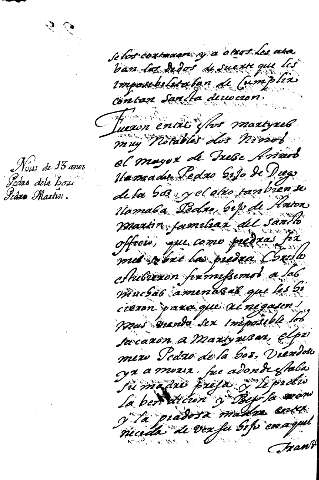 se los cortaron y a otros les ata
van los dedos de suerte que les
imposibilitaban de cumplir
con tan santa devocion.
Fueron entre estos martyres
muy notables dos Niños
el mayor de treße Años
llamado Pedro hijo de Diego
de la hoz y el otro tambien se
llamaba Pedro, hijo de Anton
Martin familiar del santo
officio, que como piedras fir
mes sobre la piedra Cristo
estubieron firmissimos a las
muchas amenazas que les hi
cieron para que renegasen
mas viendo ser imposible los
sacaron a Martyrizar, el pri
mero Pedro de la hoz, viendose
yr a morir fue adonde estaba
su madre presa y le pidio
la bendicion y besso la mano
y la piadosa madre enter
necida de ver su hijo en aquel
Niños de 13 anos
Pedro de la hoz
Pedro Martin.